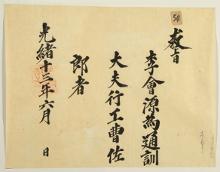 教旨
李會源爲通訓
大夫行工曹佐
郎者
光緒十三年六月 日